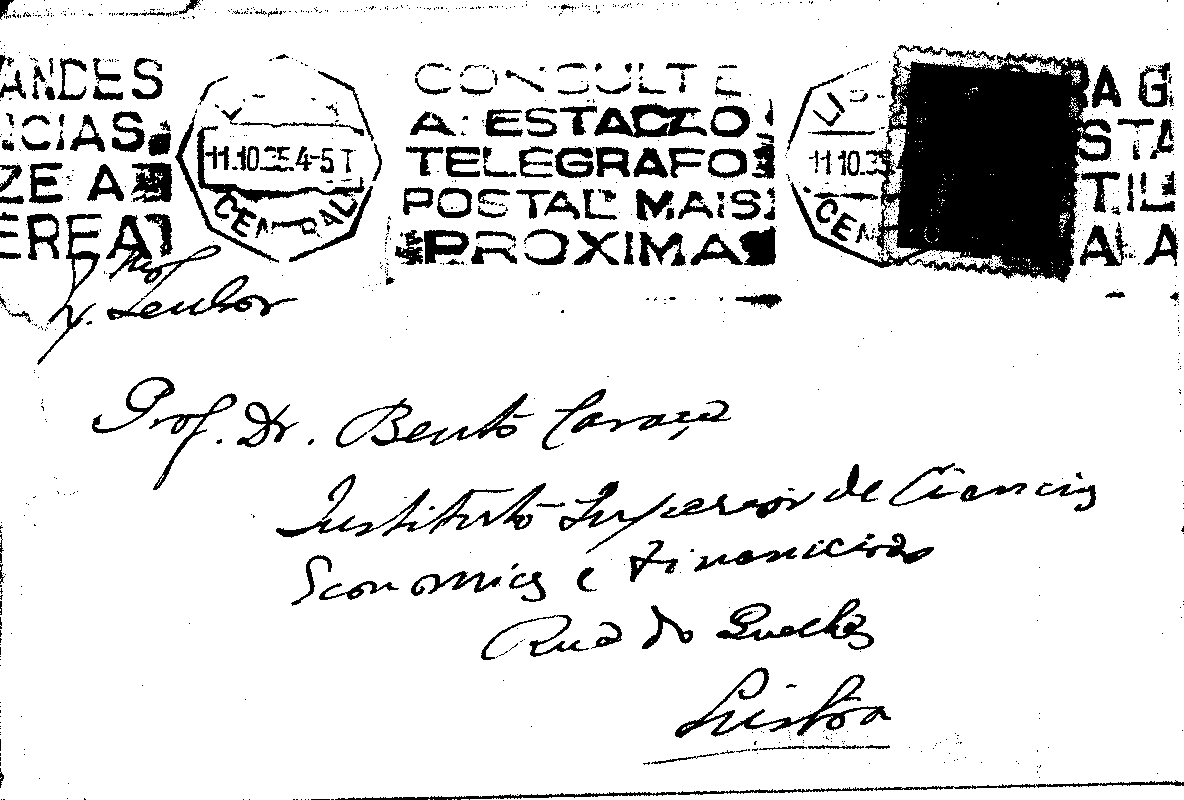 ANDES
NCIAS
ZE A
EREA
11.10.35.4-5T
CENTRAL
CONSULTE
A ESTAÇÃO
TELEGRAFO
POSTAL MAIS
PROXIMA
LIS
11 10.35
CEN
RA G
STA
TIL
A A
Senhor
Prof. Dr. Bento Caraça
Instituto Superior de Ciencias
Economicas e Financeiras
Rua do Quelhas
Lisboa